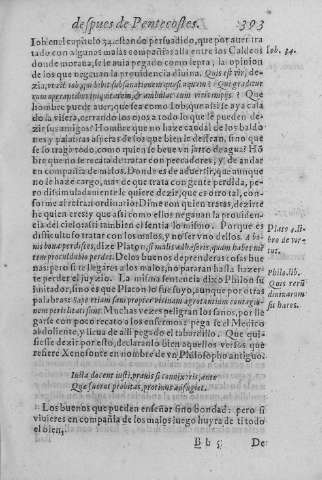 despues de Pentecostes. 393
Iob en el capitulo 34. estando persuadido, que por auer tra
tado con algunas malas compañias alla entre los Caldeos
donde moraua, se le auia pegado como lepra, la opinion
de los que negauan la prouidencia diuina. Quis est vir, de-
zia, vt est Iob, qui bibit subsannationem quasi aquam? Qui graditur
cum operantibus iniquitatem, & ambulat cum viris impijs? Que
hombre puede auer, que sea como Iob, que assi se aya cala
do la visera, cerrando los ojos a todo lo que le pueden de-
zir sus amigos? Hombre que no haze caudal de los baldo
nes y palabras asperas de los que bien le dessean, sino que
se lo traga todo, como quien se beue vn jarro de agua? Hō
bre que no se recata de tratar con peccadores, y de andar
en compañia de malos. Donde es de aduertir, que aunque
no se haze cargo, mas de que trata con gente perdida, pe-
ro dissimuladamente le quiere dezir, que es otro tal, con-
forme al refran ordinario: Dime con quien tratas, dezirte
he quien eres: y que assi como ellos negauan la prouiden-
cia del cielo assi tambien el sentia lo mismo. Porque es
difficulto so tratar con los malos, y no ser vno dellos. A bo-
nis bona perdisces, dize Platon, si malis adhæseris, quam habes mē
tem procul dubio perdes. De los buenos deprenderas cosas bue
nas: pero si te llegares a los malos, no pararan hasta hazer-
te perder el juyzio. La misma sentencia dixo Philon su
imitador, sino es que Placon lo fue suyo, aunque por otras
palabras: Sape etiam semper vicinam agrotantium contagio-
nem periclitati sunt. Muchas vezes peligran los sanos, por lle
garse con poco recato a los enfermos: pega se el Medico
al doliente, y lieua de alli pegado el tabardillo. Que qui-
siesse dezir por esto, declaranlo bien aquellos versos que
refiere Xenofonte en nombre de vn Philosopho antiguo.
Iusta docent iusti, prauis si coniuxeris, ante
Quæ fuerat probitas, protinus aufugiet.
Los buenos que pueden enseñar sino bondad: pero si
viuieres en compañia de los malos luego huyra de ti todo
el bien,
B b 5 De
Iob. 34.
Plato 4. li.
bro de vir
tut.
Philo. lib.
Quis rerū
diuinarum
sit hæres.